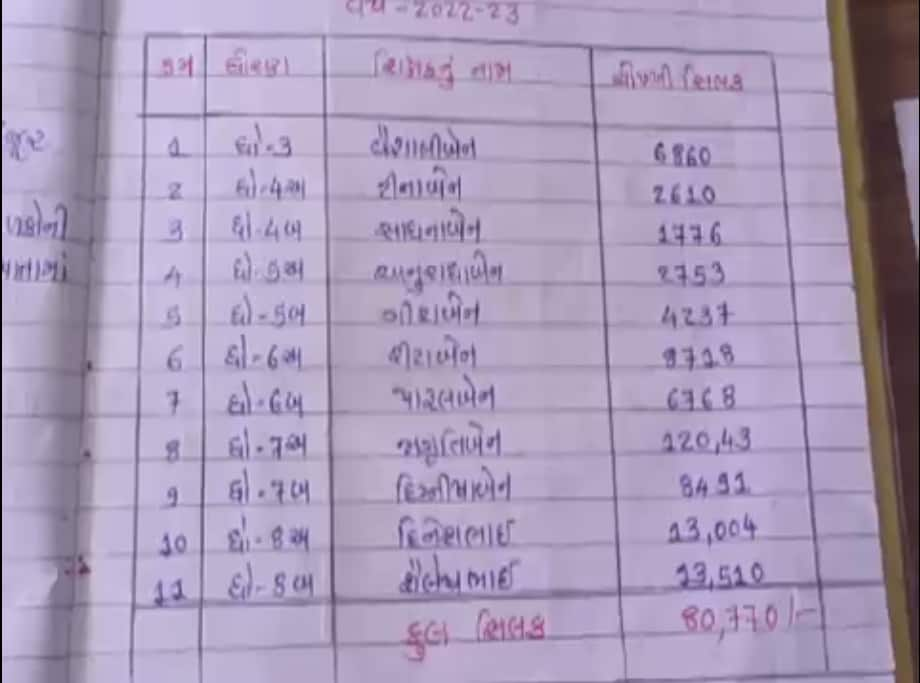 વર્ષ - 2022-23
ક્રમ ધોરણ શિક્ષકનું નામ બચત સિલક
1 ધો-3 વૈશાલીબેન 6860
2 ધો-4અ રીનાબેન 2610
3 ધો-4બ સાધનાબેન 1776
4 ધો-5અ અનુરાધાબેન 2753
5 ધો-5બ 4237
6 ધો-6અ 9718
7 ધો-6બ પારૂલબેન 6768
8 ધો-7અ જાગૃતિબેન 120,43
9 ધો-7બ 8491
10 ધો-8અ દિનેશભાઈ 13,004
11 ધો-8બ શૈલેષભાઈ 13,510
કુલ સિલક 80,770/-